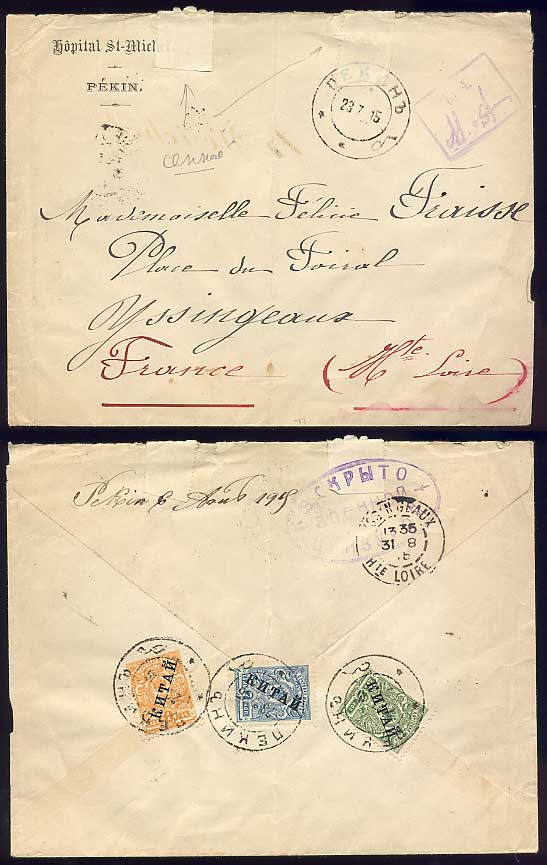 Hôpital St-Michel
PÉKIN.
ПЕКИНЪ
23 7 15
censure
Mademoiselle Féline Fraisse
Place du Foiral
Yssingeaux
France (Hte. Loire)
Pékin 6 Août 1915
СКРЫТО
ВОЕННОЙ
YSSINGEAUX
13 35
31 8
15
HTE LOIRE
КИТАЙ
КИТАЙ
ПЕКИНЪ
КИТАЙ